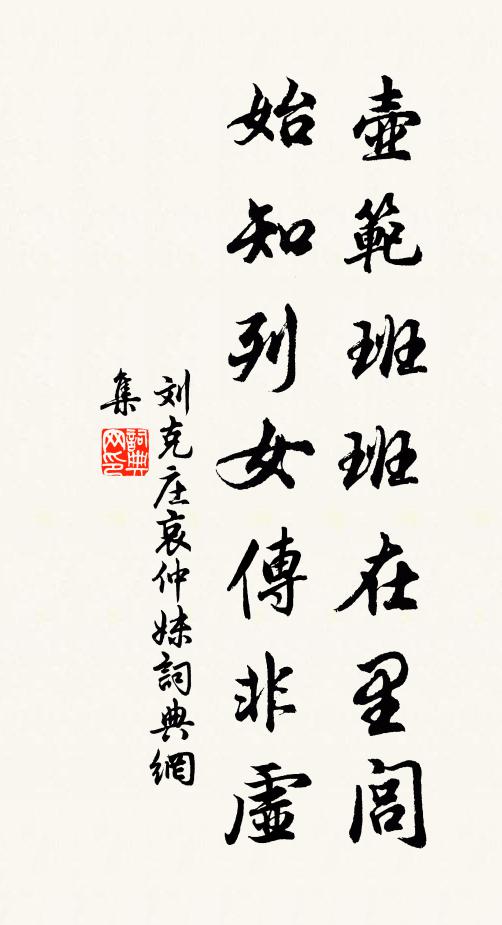 壺範班班在里閭
始知列女傳非虛
刘克庄哀仲妹詞典網
集
詞典
网印